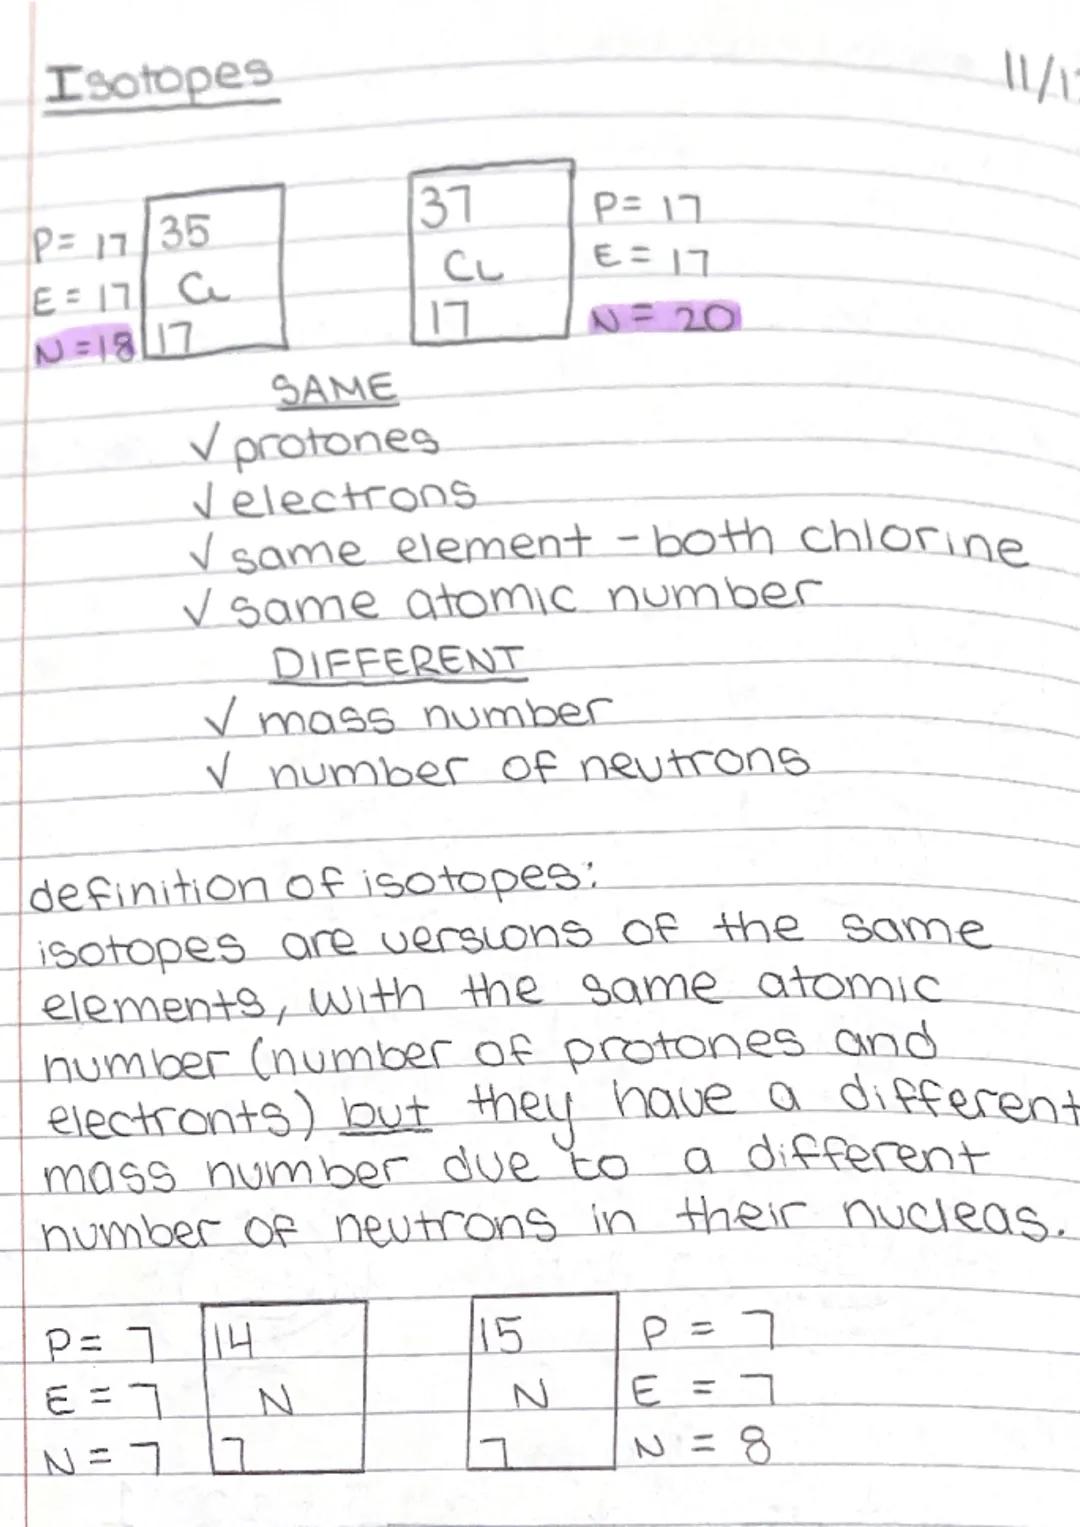 Isotopes 11/1
P= 17 35 37 P= 17
E = 17 CL CL E = 17
N =18 17 17 N = 20
SAME
√ protones
√ electrons
√ same element - both chlorine
√ same atomic number
DIFFERENT
√ mass number
√ number of neutrons
definition of isotopes:
isotopes are versions of the same
elements, with the same atomic
number (number of protones and
electronts) but they have a different
mass number due to a different
number of neutrons in their nucleas.
P= 7 14 15 P = 7
E = 7 N N E = 7
N = 7 7 7 N = 8